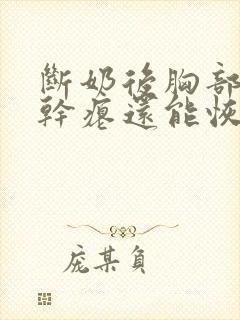 斷奶後胸部
幹癟還能恢
龐某負